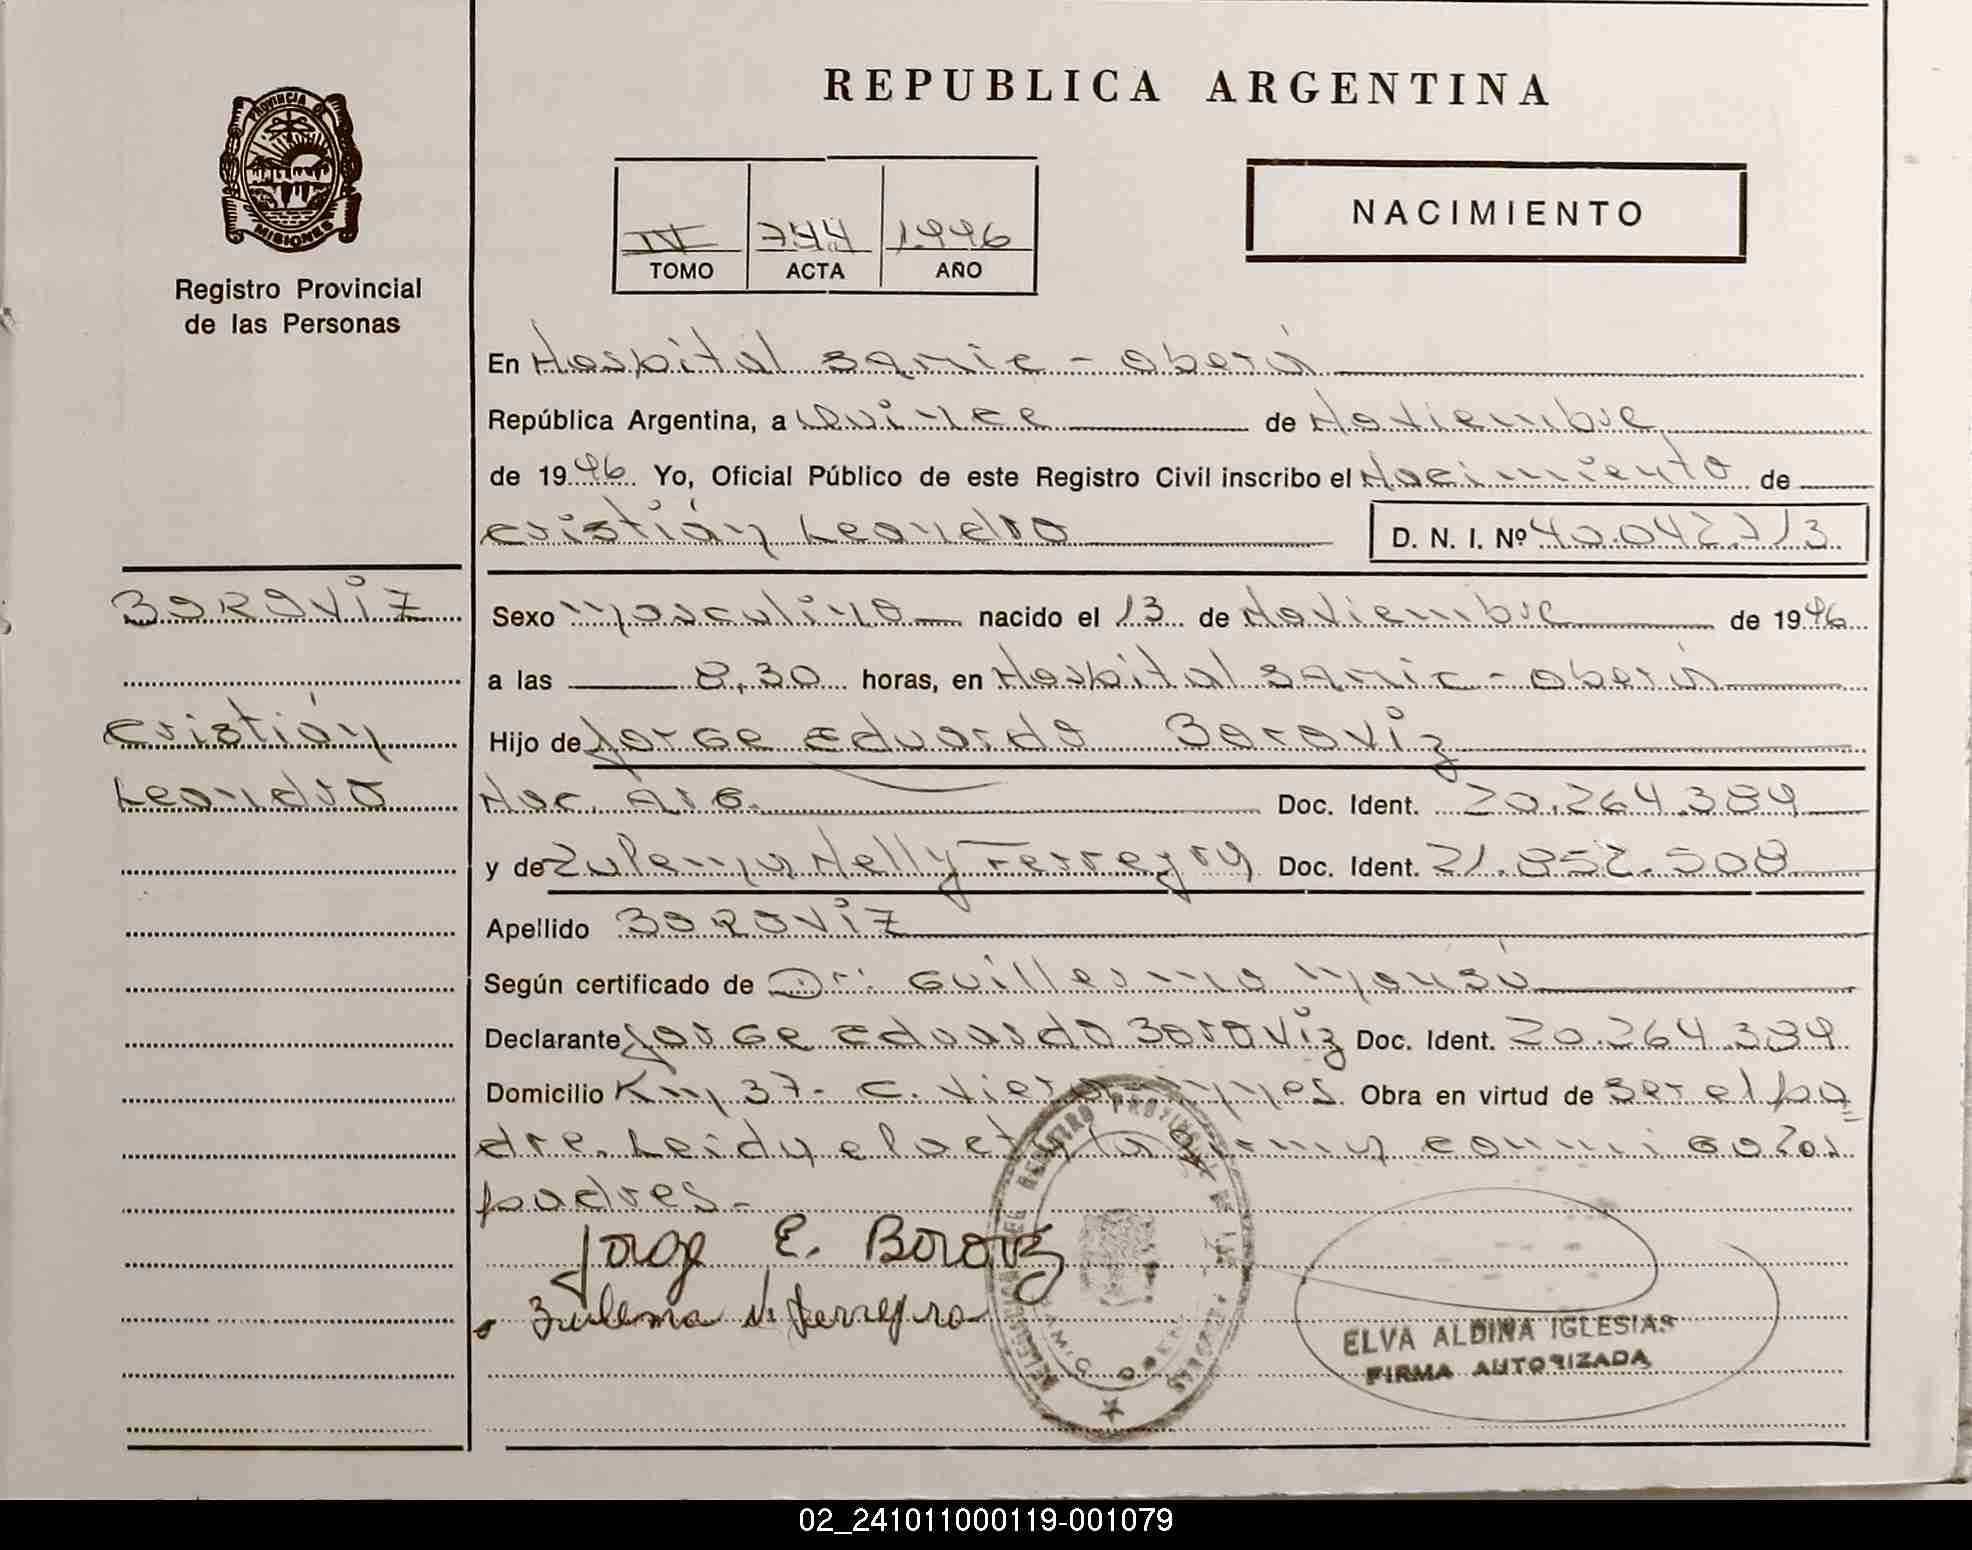 REPUBLICA ARGENTINA
PROVINCIA DE
MISIONES
Registro Provincial
de las Personas
IV 744 1.996
TOMO ACTA AÑO
NACIMIENTO
En Hospital Samic - oberá
República Argentina, a Quince de Noviembre
de 1996. Yo, Oficial Público de este Registro Civil inscribo el Nacimiento de
Cristián Leandro D. N. I. Nº 40.042.713
BOROVIZ
Cristián
Leandro
Sexo Masculino nacido el 13 de Noviembre de 1996
a las 8,30 horas, en Hospital Samic - oberá
Hijo de Jorge Eduardo Boroviz
Nac. Arg. Doc. Ident. 20.264.389
y de Zulema Nelly Ferreyra Doc. Ident. 21.852.508
Apellido BOROVIZ
Según certificado de Dr. Guillermo
Declarante Jorge Eduardo Boroviz Doc. Ident. 20.264.389
Domicilio Km 37- C. Viera Mnes. Obra en virtud de Ser el pa
dre. Leida el acta la firman conmigo los
padres.-
Jorge E. Boroviz
Zulema N. Ferreyra
DELEGACION DEL REGISTRO PROVINCIAL DE LAS PERSONAS
ELVA ALDINA IGLESIAS
FIRMA AUTORIZADA
02_241011000119-001079